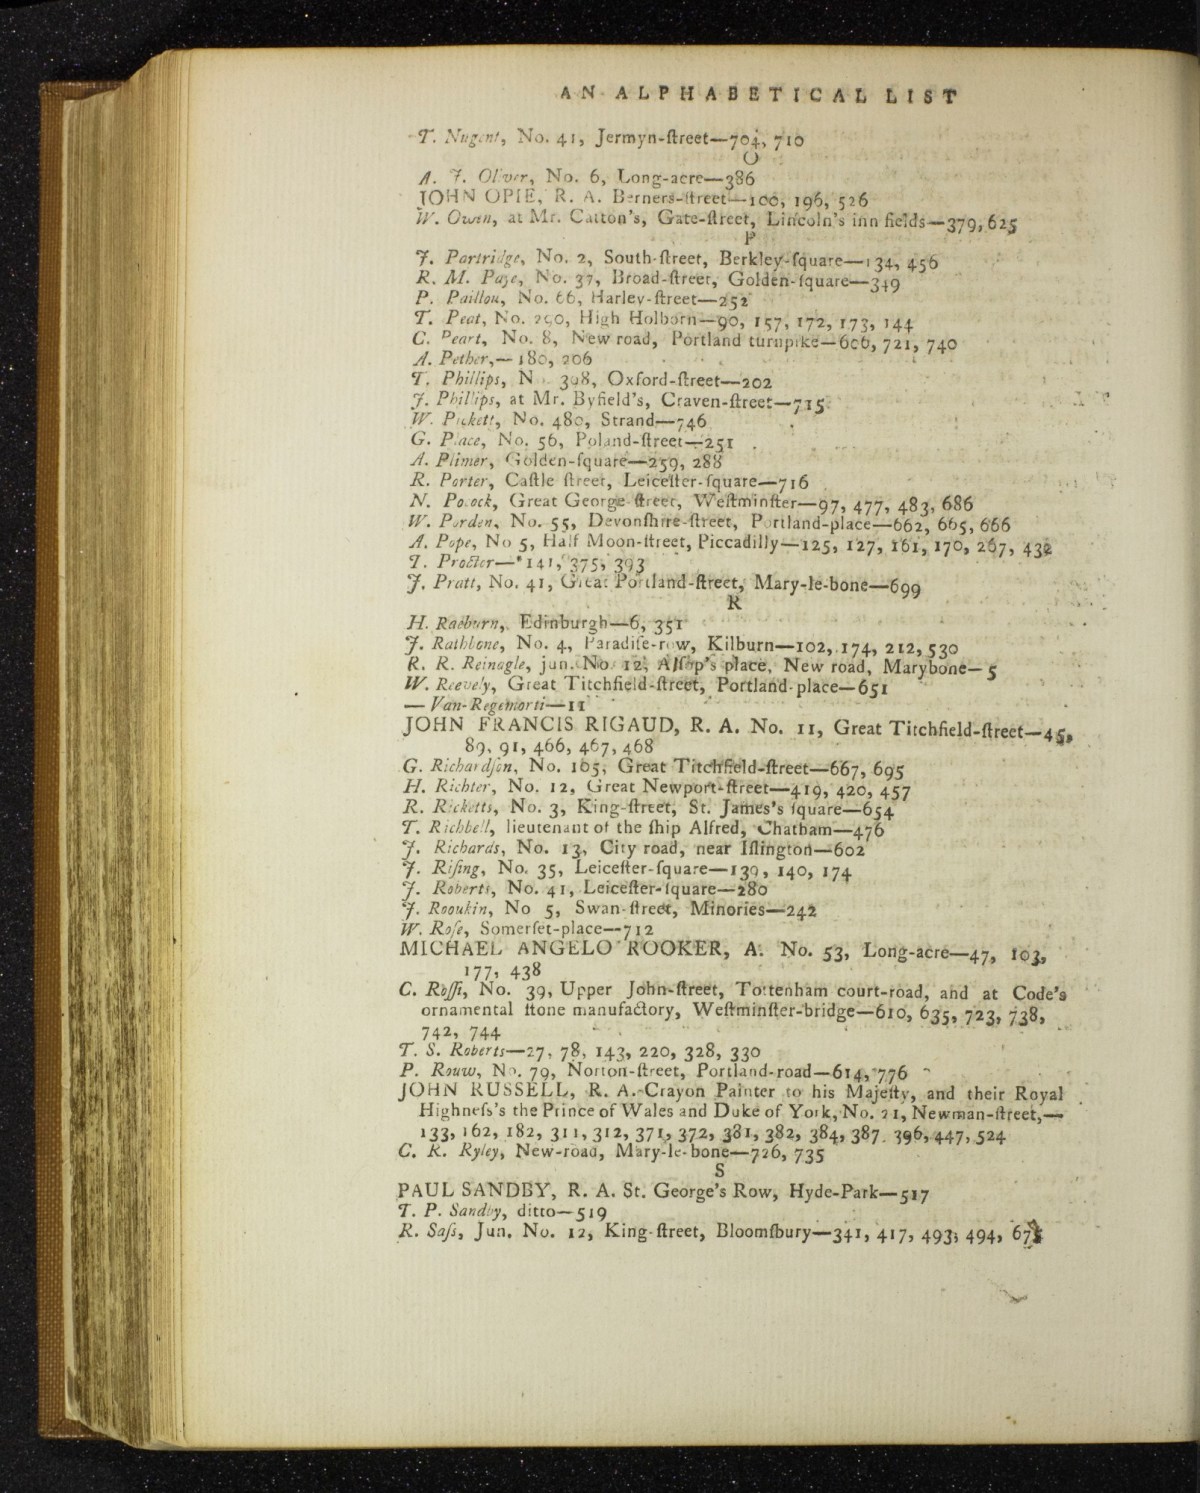 AN ALPHABETICAL LIST
T. Nugent, No. 41, Jermyn-ſtreet—704, 710
O
A. J. Oliver, No. 6, Long-acre—386
JOHN OPIE, R. A. Berners-ſtreet—100, 196, 526
W. Owen, at Mr. Catton's, Gate-ſtreet, Lincoln's inn fields—379, 625
P
J. Partridge, No. 2, South-ſtreet, Berkley-ſquare—134, 456
R. M. Paye, No. 37, Broad-ſtreet, Golden-ſquare—349
P. Paillou, No. 66, Harley-ſtreet—252
T. Peat, No. High Holborn—90, 157, 172, 173, 144
C. Peart, No. 8, New road, Portland turnpike—606, 721, 740
A. Pether,—180, 206
T. Phillips, No. 398, Oxford-ſtreet—202
J. Phillips, at Mr. Byfield's, Craven-ſtreet—715
W. Pickett, No. 480, Strand—746
G. Place, No. 56, Poland-ſtreet—251
A. Plimer, Golden-ſquare—259, 288
R. Porter, Caſtle ſtreet, Leiceſter-ſquare—716
N. Pocock, Great George-ſtreet, Weſtminſter—97, 477, 483, 686
W. Porden, No. 55, Devonſhire-ſtreet, Portland-place—662, 665, 666
A. Pope, No 5, Half Moon-ſtreet, Piccadilly—125, 127, 161, 170, 267, 432
T. Proctor—141, 375, 393
J. Pratt, No. 41, Great Portland-ſtreet, Mary-le-bone—699
R
H. Raeburn, Edinburgh—6, 351
J. Rathbone, No. 4, Paradiſe-row, Kilburn—102, 174, 212, 530
R. R. Reinagle, jun. No. 12, Alſop's place, New road, Marybone—5
W. Reevely, Great Titchfield-ſtreet, Portland-place—651
— Van-Regemorti—11
JOHN FRANCIS RIGAUD, R. A. No. 11, Great Titchfield-ſtreet—45,
89, 91, 466, 467, 468
G. Richardſon, No. 105, Great Titchfield-ſtreet—667, 695
H. Richter, No. 12, Great Newport-ſtreet—419, 420, 457
R. Ricketts, No. 3, King-ſtreet, St. James's ſquare—654
T. Richbell, lieutenant of the ſhip Alfred, Chatham—476
J. Richards, No. 13, City road, near Iſlington—602
J. Riſing, No. 35, Leiceſter-ſquare—139, 140, 174
J. Roberts, No. 41, Leiceſter-ſquare—280
J. Rooukin, No 5, Swan-ſtreet, Minories—242
W. Roſe, Somerſet-place—712
MICHAEL ANGELO ROOKER, A. No. 53, Long-acre—47, 103,
177, 438
C. Roſſi, No. 39, Upper John-ſtreet, Tottenham court-road, and at Code's
ornamental ſtone manufactory, Weſtminſter-bridge—610, 635, 723, 738,
742, 744
T. S. Roberts—27, 78, 143, 220, 328, 330
P. Rouw, No. 79, Norton-ſtreet, Portland-road—614, 776
JOHN RUSSELL, R. A. Crayon Painter to his Majeſty, and their Royal
Highneſs's the Prince of Wales and Duke of York, No. 21, Newman-ſtreet,—
133, 162, 182, 311, 312, 371, 372, 381, 382, 384, 387. 396, 447, 524
C. R. Ryley, New-road, Mary-le-bone—726, 735
S
PAUL SANDBY, R. A. St. George's Row, Hyde-Park—517
T. P. Sandby, ditto—519
R. Saſs, Jun. No. 12, King-ſtreet, Bloomſbury—341, 417, 493, 494,